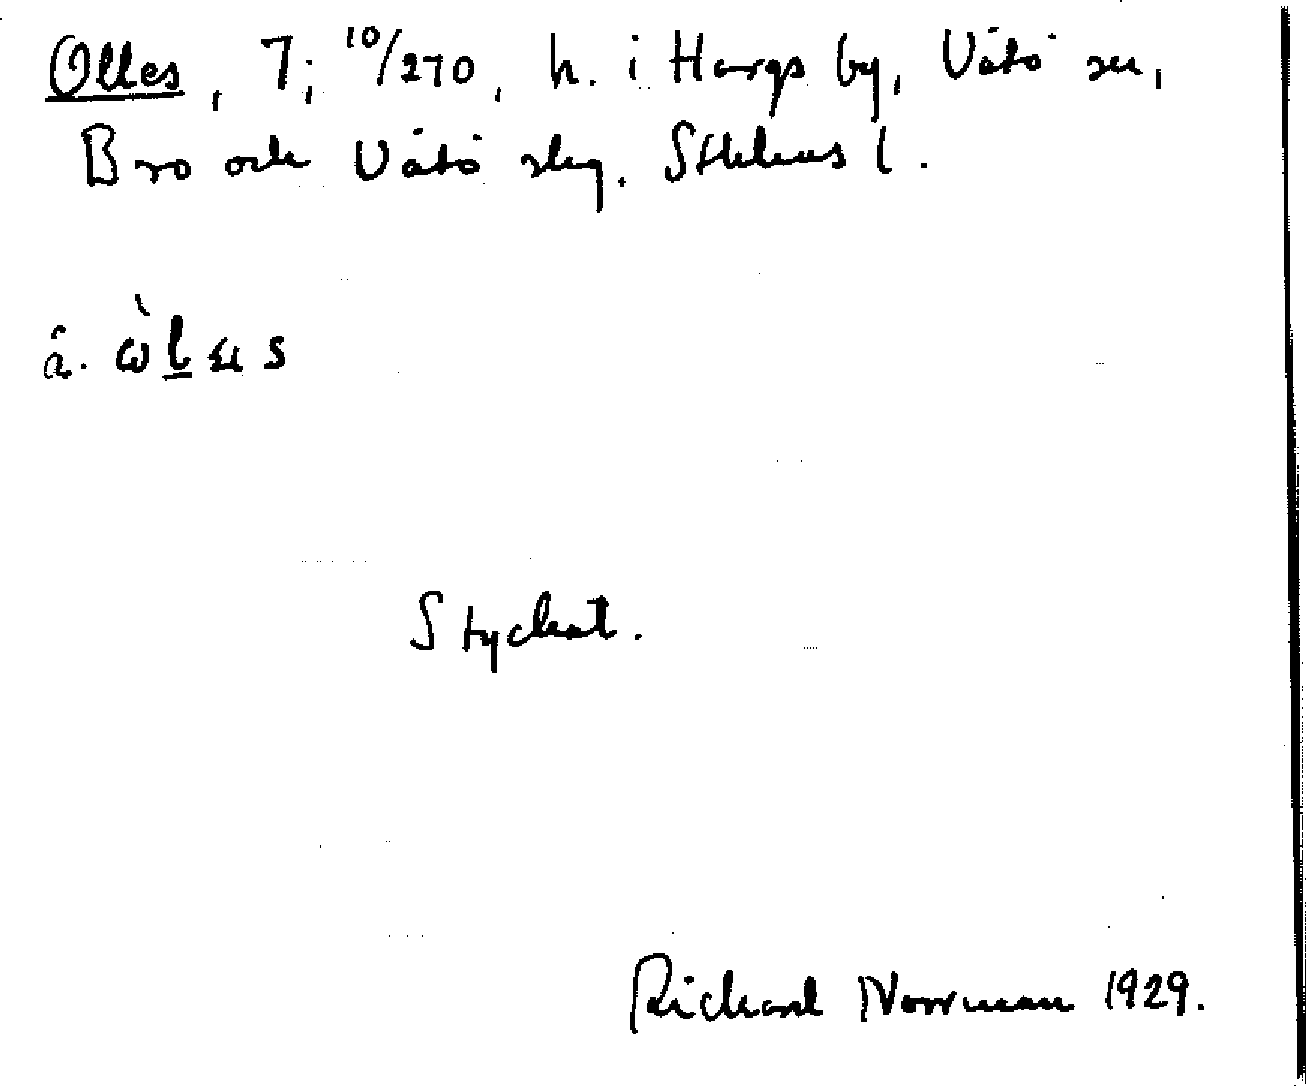 Olles, 7; 10/270, h. i Hargs by, Vätö sn,
Bro och Vätö skg. Sthlms l.
a. ὼlɛs
Styckat.
Richard Norrman 1929.